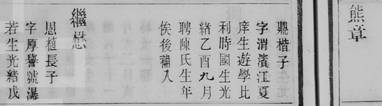 熊章
鼎楷子
字渭濱江夏
庠生遊學比
利時國生光
緒乙酉九月
聘陳氏生年
俟後續入
繼懋
恩植長子
字厚馨號滿
若生光緒戊